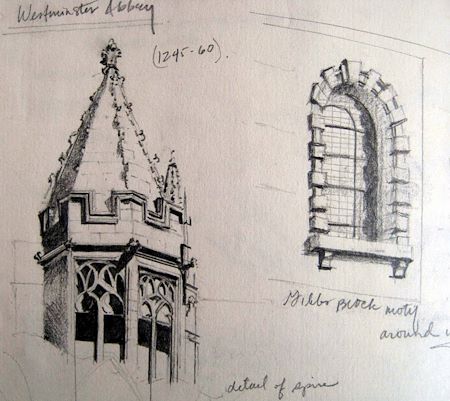 Westminster Abbey
(1245-60).
Gibbs Block motif
around
detail of spire